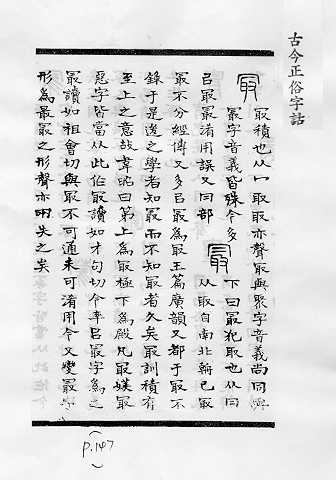 古今正俗字詁
冣
冣積也从冖取取亦聲冣與聚字音義尚同與
最字音義皆殊今多
㠯冣最淆用誤又冃部
最
下曰最犯取也从冃
从取自南北朝已冣
最不分經傳又多㠯最為冣玉篇廣韻又都于取不
錄于是後之學者知最而不知冣者久矣冣訓積有
至上之意故韋昭曰第上為冣極下為殿凡冣媄冣
惡字皆當从此作冣讀如才句切今率㠯最字為之
最讀如祖會切與冣不可通未可淆用今又變最字
形為最冣之形聲亦网失之矣
(P.147)